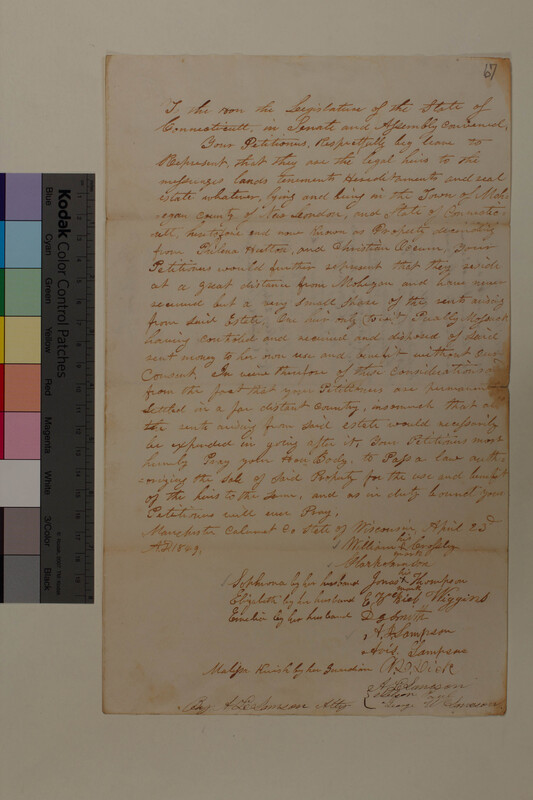 67
To the Hon the Legislature of the State of
Connecticutt, in Senate and Assembly convened,
Your Petitioners, Respectfully beg leave to
Represent, that they are the legal heirs to the
messuages lands tenements Hereditaments and real
estate whatever, lying and being in the Town of Moh-
egan County of New London, and State of Connectic-
utt, heretofore and now known as Property
from and Christian Your
Petitioners would further represent that they reside
at a great distance from Mohegan and have never
received but a very small share of the rents arising
from said Estate, One heir only to wit
having controled and received and disposed of said
rent money to her own use and benefit without our
Consent. In view therefore of these Considerations and
from the fact that your Petitioners are permanently
settled in a far distant Country, insomuch that all
the rents arising from said estate would necessarily
be expended in going after it, Your Petitioners most
humbly Pray your Hon. Body, to Pass a law auth-
orizing the sale of said Property for the use and benefit
of the heirs to the same, and as in duty bound your
Petitioners will ever Pray,
Manchester Calumet Co State of Wisconsin April 23d
AD 1849,
William his mark Crosley
Sophrona by her husband Jonas his mark Thompson
Elizabeth by her husband Wiggins
Emeline by her husband D
Sampson
Sampson
by her Guardian Dick
Sampson
By Attys
Kodak Color Control Patches
Blue
Cyan
Green
Yellow
Red
Magenta
White
3/Color
Black